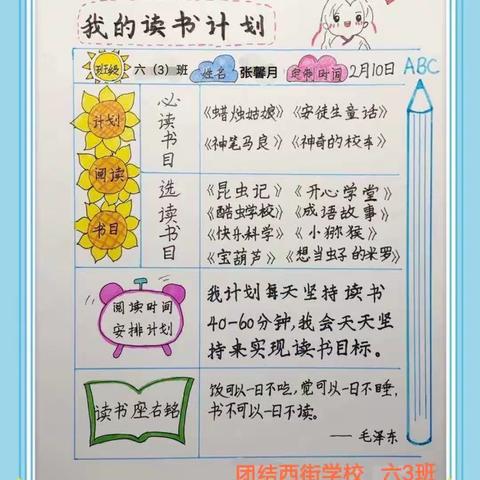 我的读书计划
班级 六（3）班 姓名 张馨月 定制时间 2月10日 ABC
计划
阅读
书目
必读书目
《蜡烛姑娘》《安徒生童话》
《神笔马良》《神奇的校车》
选读书目
《昆虫记》《开心学堂》
《酷虫学校》《成语故事》
《快乐科学》《小猕猴》
《宝葫芦》《想当虫子的米罗》
阅读时间
安排计划
我计划每天坚持读书
40-60分钟,我会天天坚
持来实现读书目标。
读书座右铭
饭可以一日不吃,觉可以一日不睡,
书不可以一日不读。
——毛泽东
团结西街学校 六3班